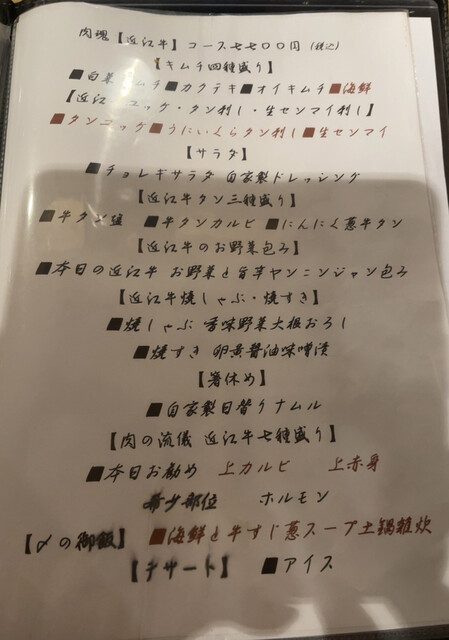 肉塊【近江牛】コース七七〇〇円(税込)
【キムチ四種盛り】
■白菜キムチ■カクテキ■オイキムチ■海鮮
【近江牛ユッケ・タン刺し・生センマイ刺し】
■タンユッケ■うにいくらタン刺し■生センマイ
【サラダ】
■チョレギサラダ 自家製ドレッシング
【近江牛タン三種盛り】
■牛タン塩 ■牛タンカルビ ■にんにく葱牛タン
【近江牛のお野菜包み】
■本日の近江牛 お野菜と旨辛ヤンニンジャン包み
【近江牛焼しゃぶ・焼すき】
■焼しゃぶ 香味野菜大根おろし
■焼すき 卵黄醤油味噌漬
【箸休め】
■自家製日替りナムル
【肉の流儀 近江牛七種盛り】
■本日お勧め 上カルビ 上赤身
希少部位 ホルモン
【〆の御飯】 ■海鮮と牛すじ葱スープ土鍋雑炊
【デザート】 ■アイス